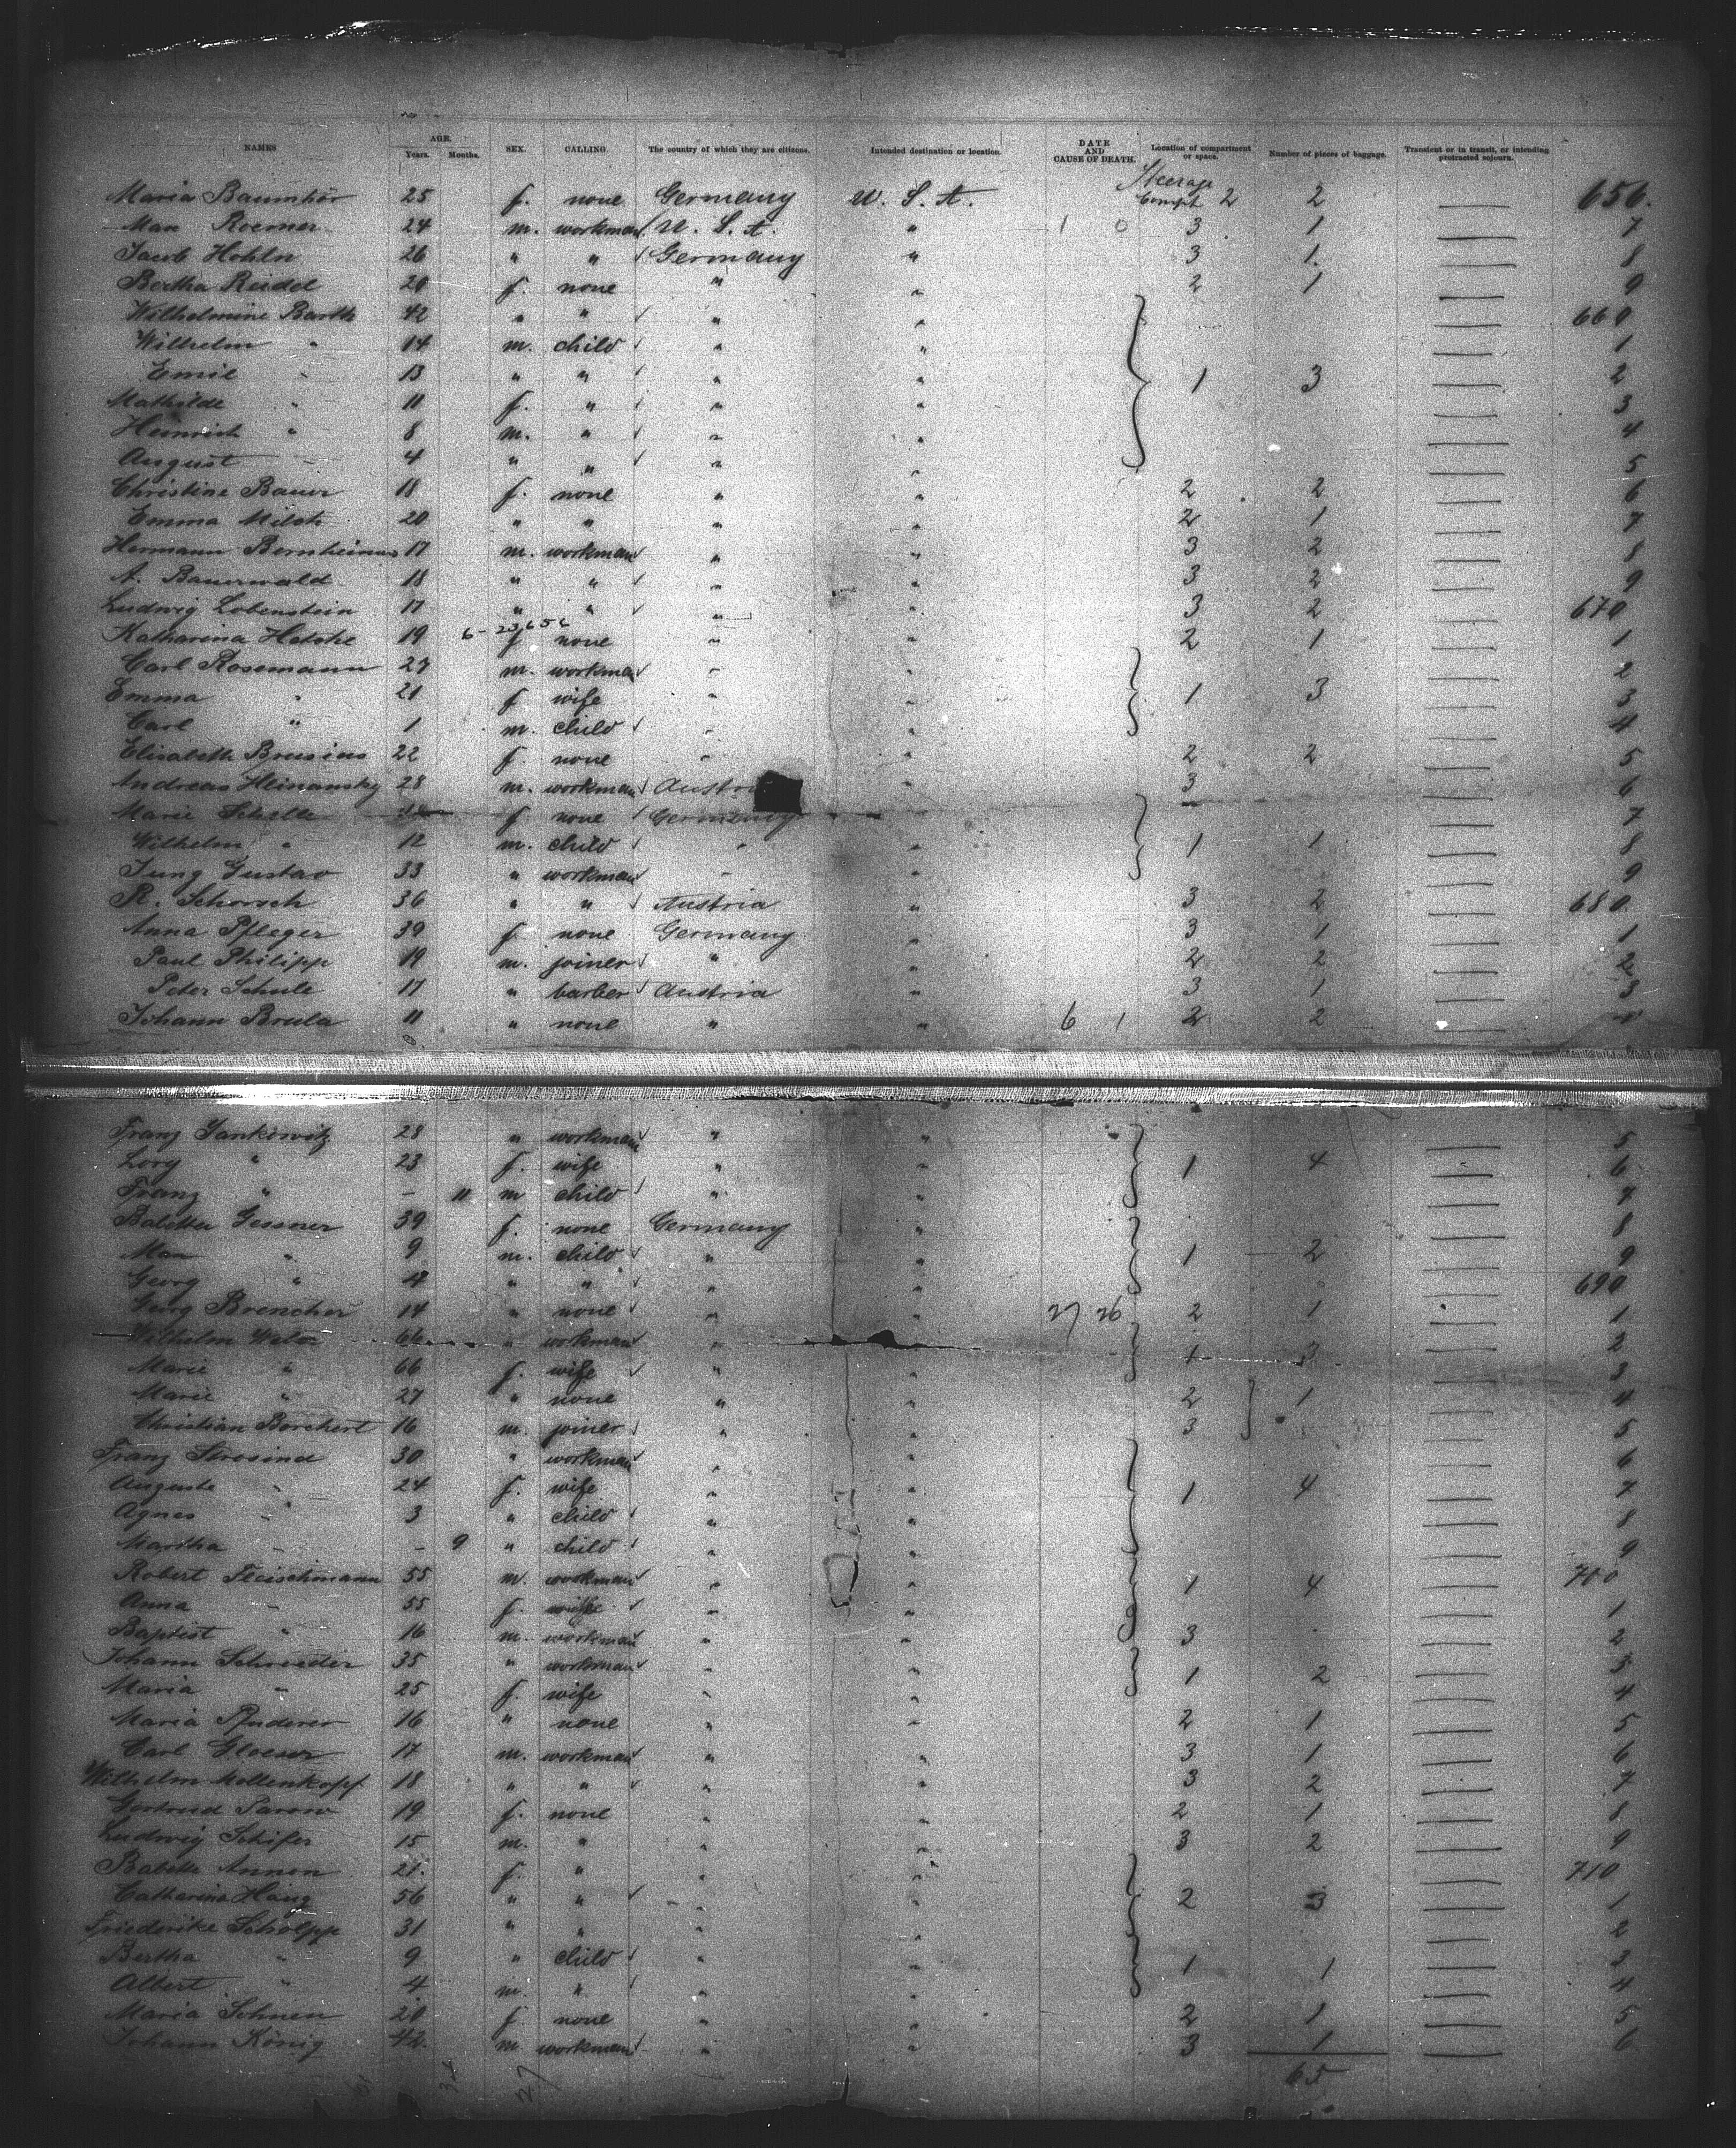 NAMES AGE. Years. Months. SEX. CALLING. The country of which they are citizens. Intended destination or location. DATE AND CAUSE OF DEATH. Location of compartment or space. Number of pieces of baggage. Transient or in transit, or intending protracted sojourn.
Maria Baumhör 25 f. none Germany U. S. A. Steerage Compt. 2 2 — 656.
Max Roemer 24 m. workman U. S. A. " 1 0 3 1 — 7
Jacob Hohln 26 " " Germany " 3 1. — 8
Bertha Reidel 20 f. none " " 2 1 — 9
Wilhelmine Barth 42 " " " " — 660
Wilhelm " 14 m. child " " — 1
Emil " 13 " " " " 1 3 — 2
Mathilde " 11 f. " " " — 3
Heinrich " 8 m. " " " — 4
August " 4 " " " " — 5
Christine Bauer 18 f. none " " 2 2 — 6
Emma Milch 20 " " " " 2 1 — 7
Hermann Bernheimer 17 m. workman " " 3 2 — 8
A. Bauerwald 18 " " " " 3 2 — 9
Ludwig Lobenstein 17 " " " " 3 2 — 670
6-23656
Katharina 19 f none " " 2 1 — 1
Carl Rosemann 27 m. workman " " — 2
Emma " 21 f wife " " 1 3 — 3
Carl " 1 m. child " " — 4
Elisabeth Brusius 22 f. none " " 2 2 — 5
Andreas Heinansky 28 m. workman Austri " 3 — 6
Marie Schelle f none Germany — 7
Wilhelm " 12 m. child " " 1 1 — 8
Jung Gustav 33 " workman " " — 9
R. Schorsch 36 " " Austria " 3 2 — 680
Anna Pfleger 39 f. none Germany 3 1 — 1
Paul Philipp 19 m. joiner " " 2 2 — 2
Peter Schule 17 " barber Austria " 3 1 — 3
Johann Brula 11 " none " " 6 1 2 2 — 4
Franz Jankowitz 28 " workman " " — 5
Lory " 23 f. wife " " 1 4 — 6
Franz " – 11 m child " " — 7
Babetta Gessner 39 f. none Germany " — 8
Max " 9 m. child " " 1 2 — 9
Georg " 4 " " " " — 690
Georg Brencher 14 " none " " 27 26 2 1 — 1
Wilhelm 66 " workman " 1 3 — 2
Marie " 66 f. wife " " — 3
Marie " 27 " none " " 2 1 — 4
Christian Borchert 16 m. joiner " " 3 — 5
Franz Strosind 30 " workman " " — 6
Auguste " 24 f. wife " " 1 4 — 7
Agnes " 3 " child " " — 8
Martha " – 9 " child " " — 9
Robert Fleischmann 55 m. workman " " 1 4 — 700
Anna " 55 f. wife " " — 1
Baptist " 16 m. workman " " 3 — 2
Johann Schneider 35 " workman " " — 3
Maria " 25 f. wife " " 1 2 — 4
Maria Pfnderer 16 " none " " 2 1 — 5
Carl Gloeser 17 m. workman " " 3 1 — 6
Wilhelm Mollenkopf 18 " " " " 3 2 — 7
Gertrud Sarow 19 f. none " " 2 1 — 8
Ludwig Schifer 15 m. " " " 3 2 — 9
Babette Annon 21. f. " " " — 710
Catharina Haug 56 " " " " 2 3 — 1
Friederike Scholpp 31 " " " " — 2
Bertha " 9 " child " " 1 1 — 3
Albert " 4 m. " " " — 4
Maria Schnen 20 f. none " " 2 1 — 5
Johann König 42. m workman " " 3 1 — 6
27 65